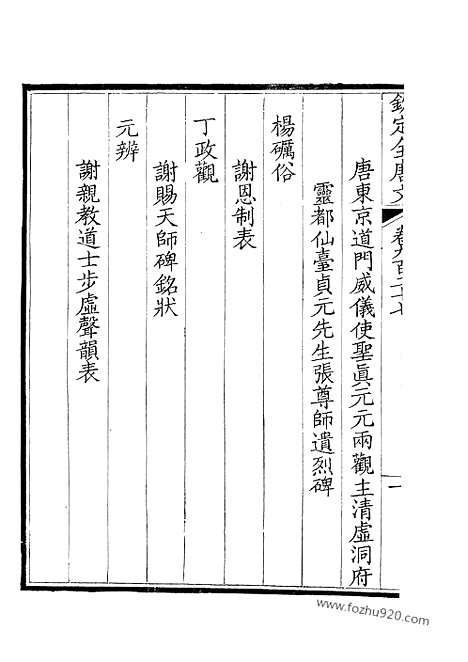 欽定全唐文 卷九百二十七 一
唐東京道門威儀使聖眞元元兩觀主清虛洞府
靈都仙臺貞元先生張尊師遺烈碑
楊礪俗
謝恩制表
丁政觀
謝賜天師碑銘狀
元辨
謝親教道士步虛聲韻表
www.fozhu920.com